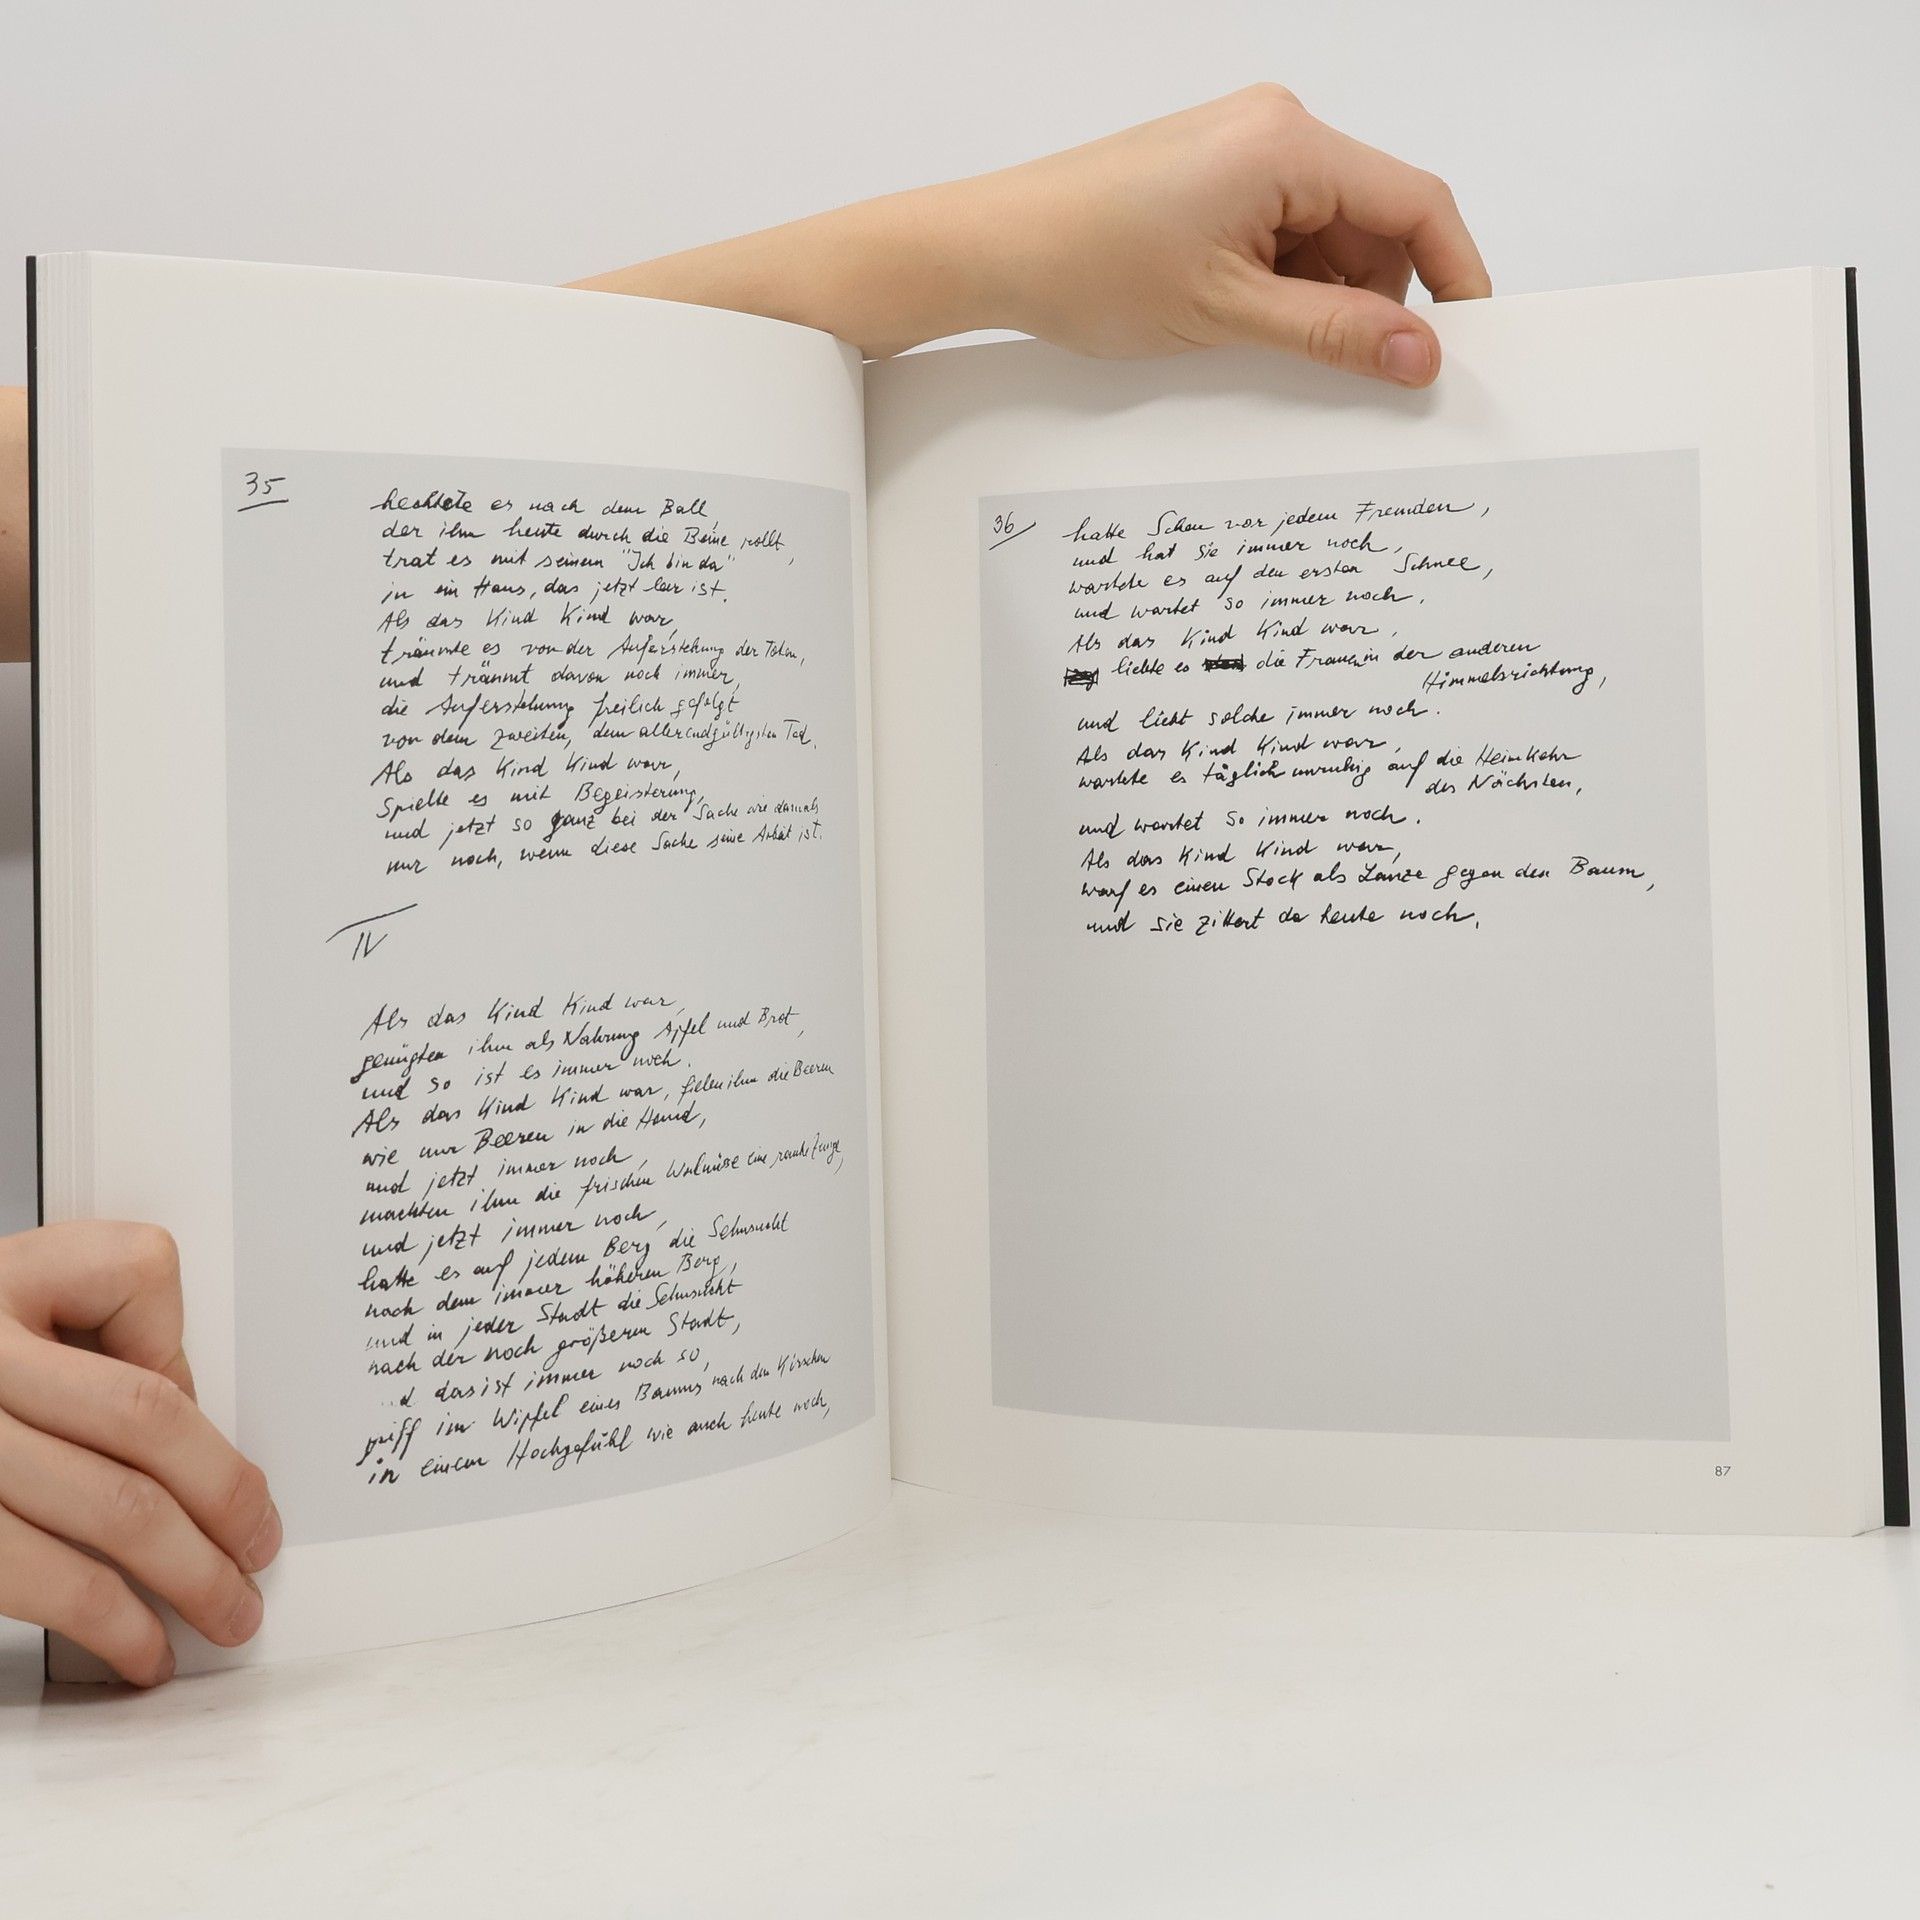 35
hechtete es nach dem Ball,
der ihm heute durch die Beine rollt,
trat es mit seinem "Ich bin da"
in ein Haus, das jetzt leer ist.
Als das Kind Kind war,
träumte es von der Auferstehung der Toten,
und träumt davon noch immer,
die Auferstehung freilich gefolgt
von dem zweiten, dem allerendgültigsten Tod.
Als das Kind Kind war,
spielte es mit Begeisterung,
und jetzt so ganz bei der Sache wie damals
nur noch, wenn diese Sache seine Arbeit ist.
IV
Als das Kind Kind war,
genügten ihm als Nahrung Apfel und Brot,
und so ist es immer noch.
Als das Kind Kind war, fielen ihm die Beeren
wie nur Beeren in die Hand,
und jetzt immer noch,
machten ihm die frischen Walnüsse eine rauhe Zunge,
und jetzt immer noch,
hatte es auf jedem Berg die Sehnsucht
nach dem immer höheren Berg,
und in jeder Stadt die Sehnsucht
nach der noch größeren Stadt,
d das ist immer noch so,
griff im Wipfel eines Baums nach den Kirschen
in einem Hochgefühl wie auch heute noch,
36
hatte Scheu vor jedem Fremden,
und hat sie immer noch,
wartete es auf den ersten Schnee,
und wartet so immer noch.
Als das Kind Kind war,
liebte es die Frauen in der anderen
Himmelsrichtung,
und liebt solche immer noch.
Als das Kind Kind war,
wartete es täglich unruhig auf die Heimkehr
des Nächsten,
und wartet so immer noch.
Als das Kind Kind war,
warf es einen Stock als Lanze gegen den Baum,
und sie zittert da heute noch.
87